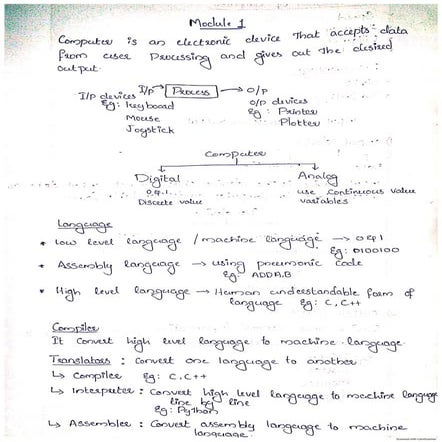 Module 1
Computer is an electronic device that accepts data
from user processing and gives out the desired
output.
I/P → Process → O/P
I/P devices
Eg: Keyboard
Mouse
Joystick
O/P devices
Eg: Printer
Plotter
Computer
Digital
0 & 1
Discrete value
Analog
use continuous value
variables
Language
* Low level language / machine language → 0 & 1
Eg: 0100100
* Assembly language → using pneumonic code
Eg: ADD A,B
* High level language → Human understandable form of
language Eg: C, C++
Compiler
It convert high level language to machine language
Translators : Convert one language to another
↳ Compiler Eg: C, C++
↳ Interpreter : Convert high level language to machine language
line by line
Eg: Python
↳ Assembler : Convert assembly language to machine
language.